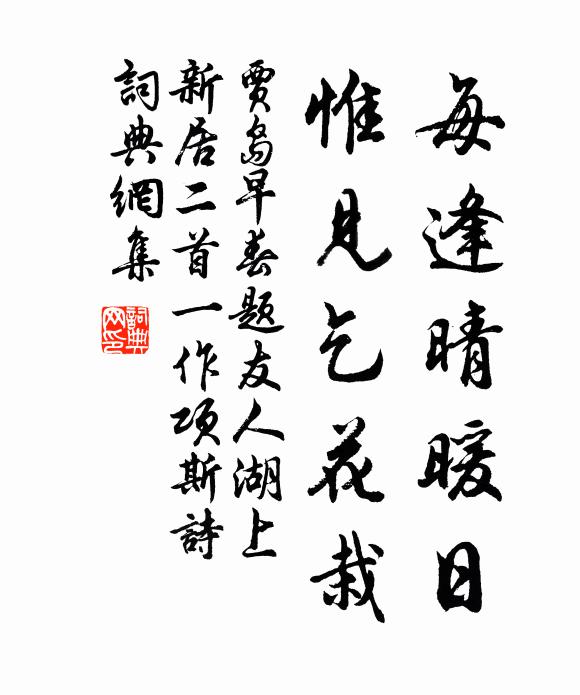 每逢晴暖日
惟見乞花栽
賈島早春題友人湖上
新居二首一作項斯詩
詞典網集
詞典网印